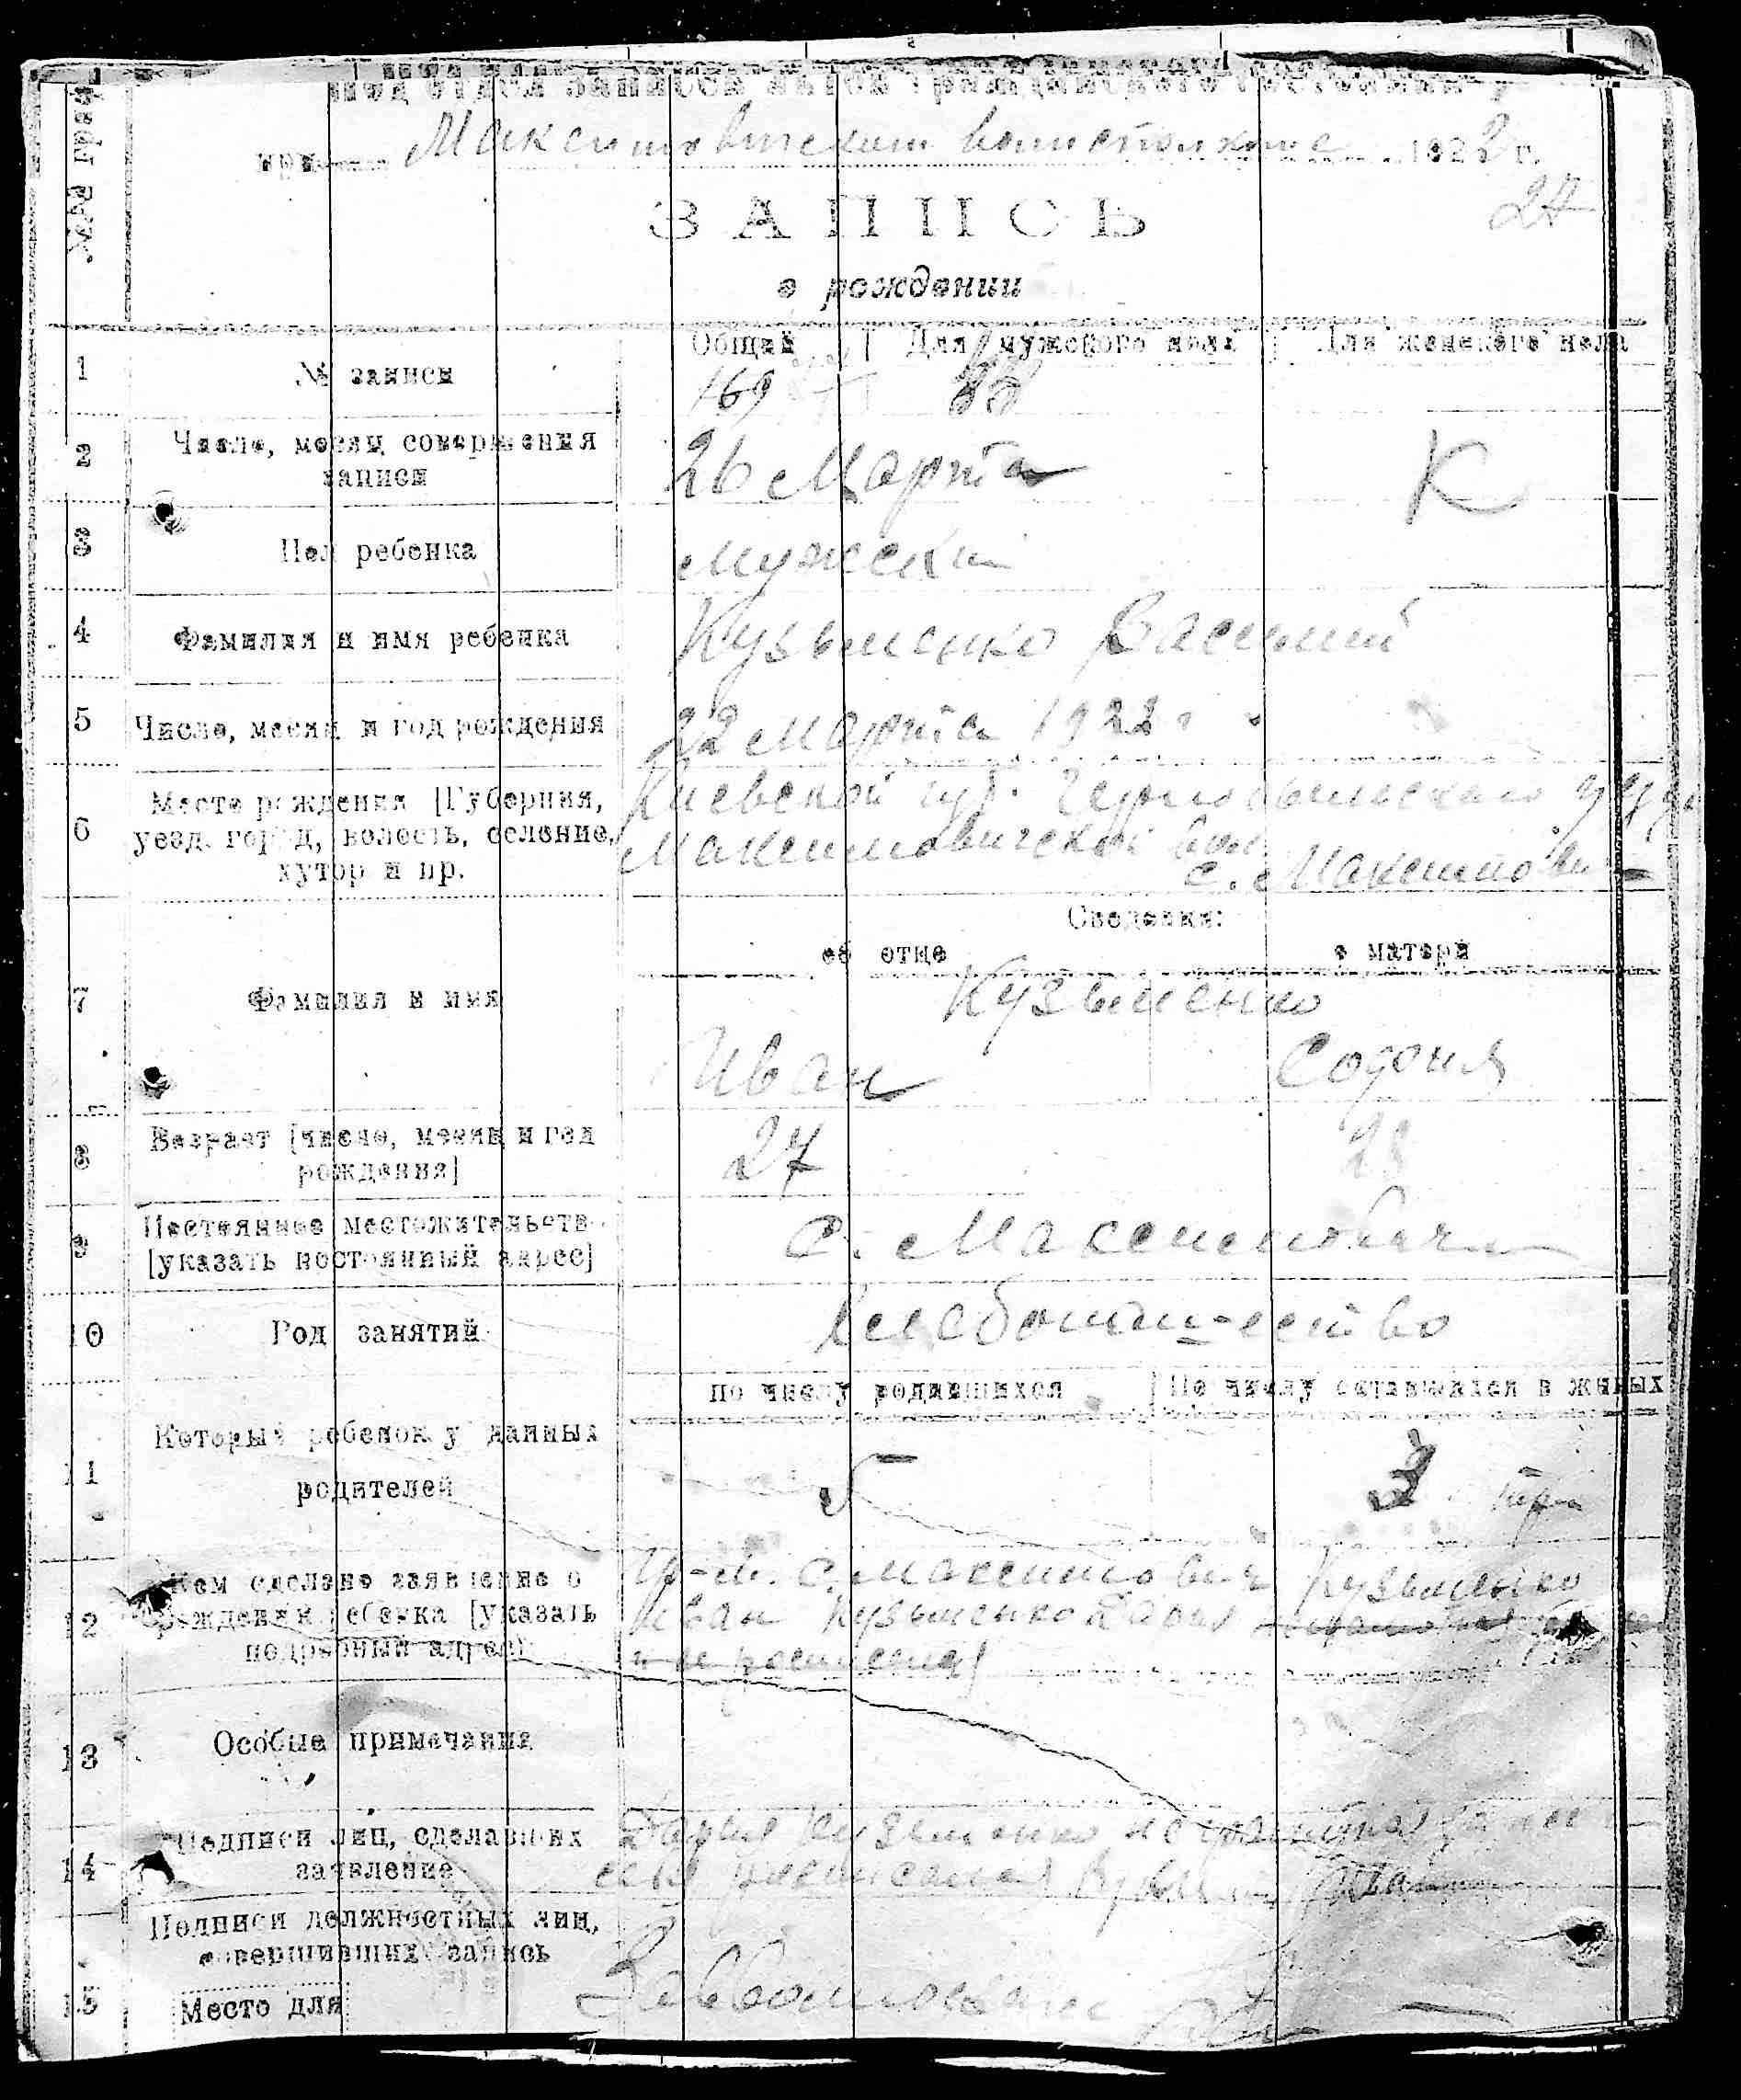 Под отдел записей актов гражданского состояния
при Максимовическом волисполкоме 1922 г.
27
ЗАПИСЬ
о рождении
Общий Для мужского пола Для женского пола
1 № записи 169 88
2 Число, месяц совершения
записи 26 Марта К
3 Пол ребенка мужской
4 Фамилия и имя ребенка Кузьменко Василий
5 Число, месяц и год рождения 22 Марта 1922 г.
6 Место рождения [Губерния,
уезд, город, волость, селение,
хутор и пр.
Киевской губ. Чернобыльского уезда
Максимовической вол.
с. Максимович
Сведения:
об отце о матери
7 Фамилия и имя Кузьменко
Иван София
8 Возраст [число, месяц и год
рождения] 27 28
9 Постоянное местожительств
[указать постоянный адрес] с. Максимовичи
10 Род занятий Хлебопашество
по числу родившихся По числу оставшихся в живых
11 Который ребенок у данных
родителей 5 3 три
12 Кем сделано заявление о
рождении ребенка [указать
подробный адрес]
Гр-н. с. Максимович Кузьменко
Иван Кузьменко Дария
13 Особые примечания
14 Подписи лиц, сделавших
заявление
Дария Кузьменко неграмотная за нее
расписался Кузьменко Иван
Подписи должностных лиц,
совершивших запись
15 Место для